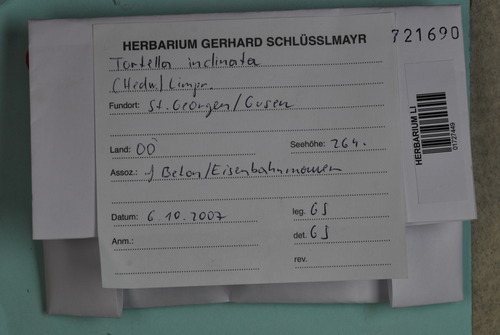 HERBARIUM GERHARD SCHLÜSSLMAYR
721690
Tortella inclinata
(Hedw.) Limpr.
Fundort: St. Georgen/Gusen
Land: OÖ
Seehöhe: 264.
Assoz.: Beton/Eisenbahnmauern
Datum: 6.10.2007
leg. GS
Anm.:
det. GS
rev.
HERBARIUM LI
01727449